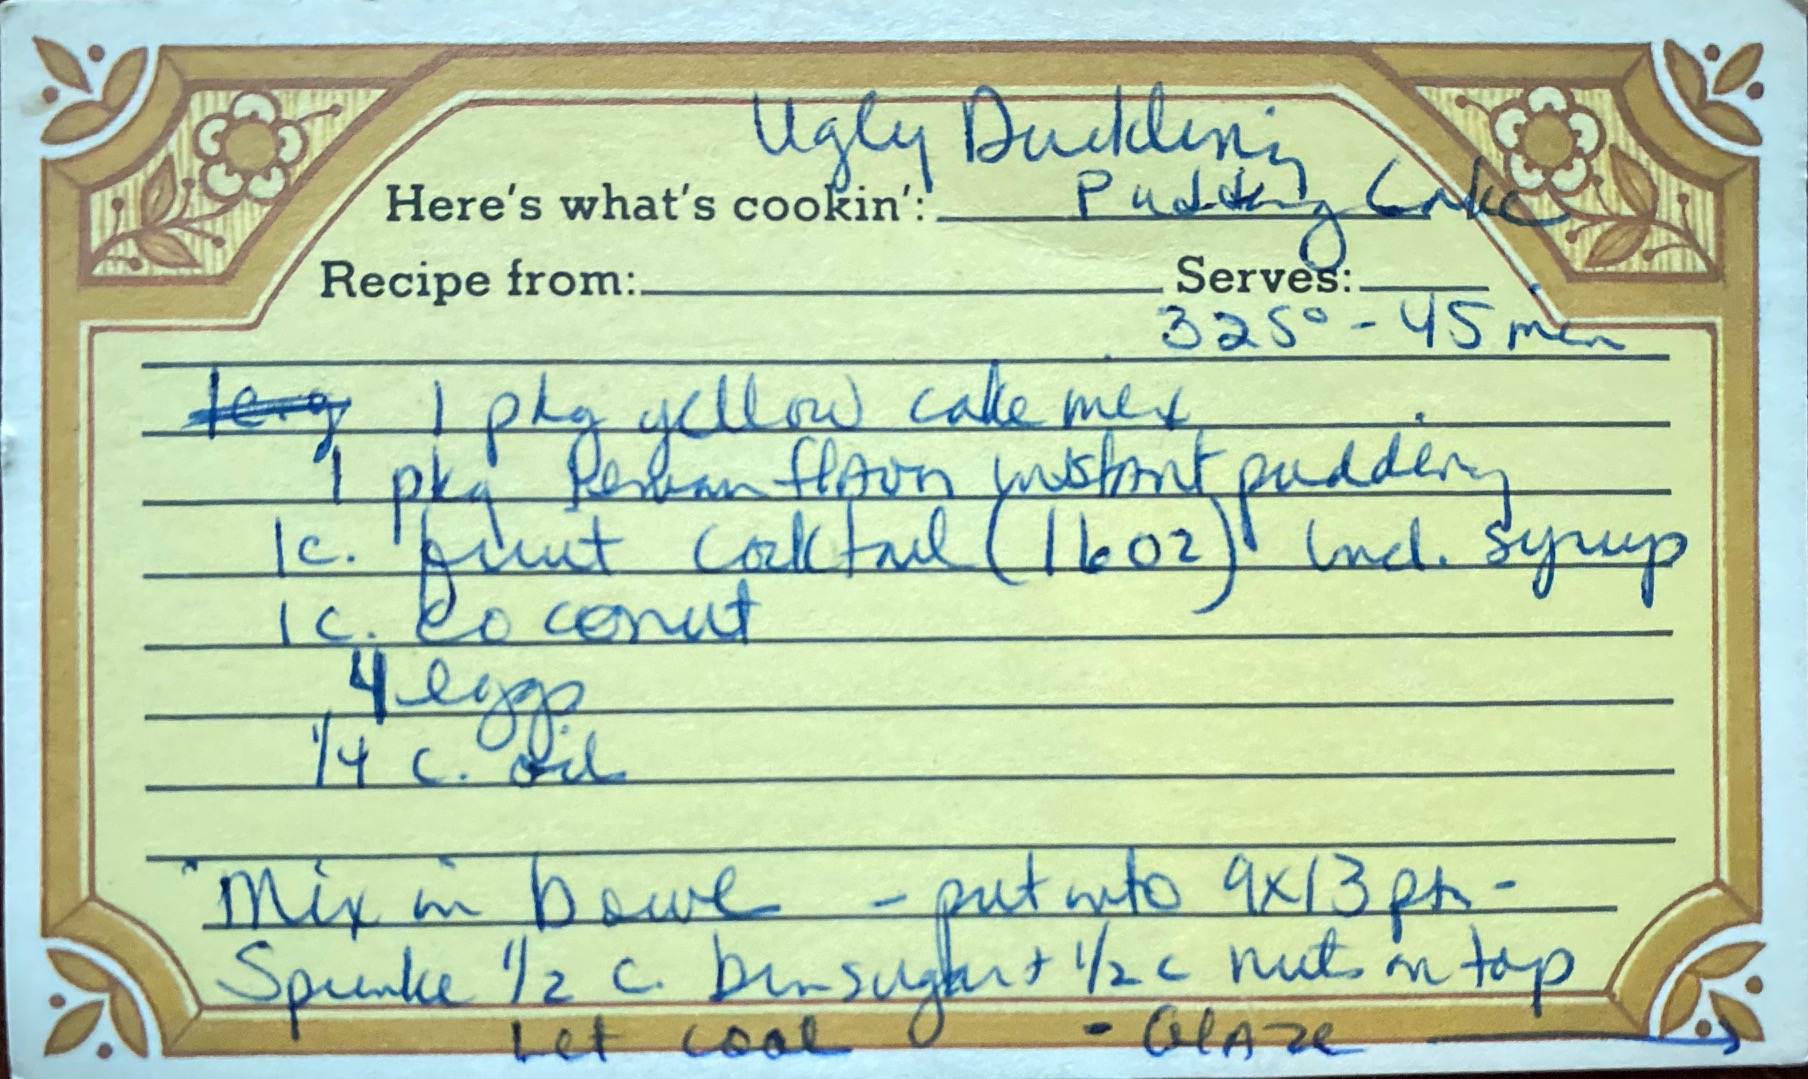 Ugly Duckling
Here's what's cookin': Pudding Cake
Recipe from: Serves:
325° - 45 min
1 pkg yellow cake mix
1 pkg flavor instant pudding
1c. fruit cocktail (16oz) incl. syrup
1 c. coconut
4 eggs
1/4 c. oil
Mix in bowl - put into 9x13 pan -
Sprinkle 1/2 c. brn sugar + 1/2 c nuts on top
Let cool - GlAze →